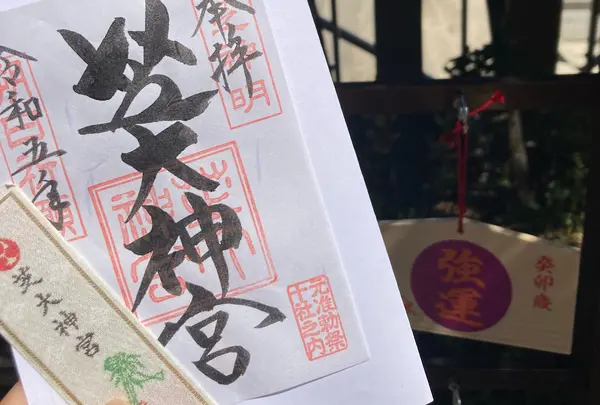 奉拝
芝大神宮
令和五年
元准勅祭
十社之内
芝大神宮
強運
癸卯歳